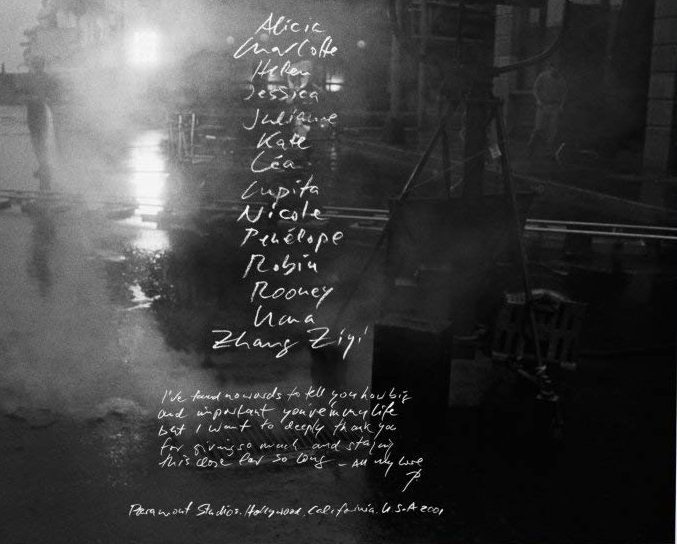 Alicia
Charlotte
Helen
Jessica
Julianne
Kate
Léa
Lupita
Nicole
Penélope
Robin
Rooney
Uma
Zhang Ziyi
I've found no words to tell you how big
and important you're in my life
but I want to deeply thank you
for giving so much and staying
this close for so long – All my love
P
Paramount Studios, Hollywood, California, U.S.A 2001